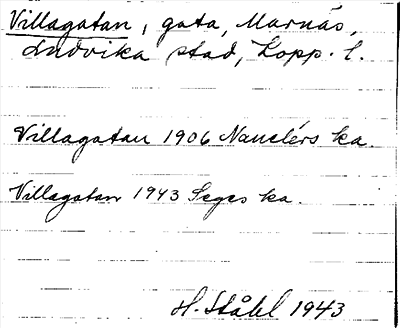 Villagatan, gata, Marnäs,
Ludvika stad, Kopp. l.
Villagatan 1906 Nauclérs ka.
Villagatan 1943 Seges ka.
H. Ståhl 1943